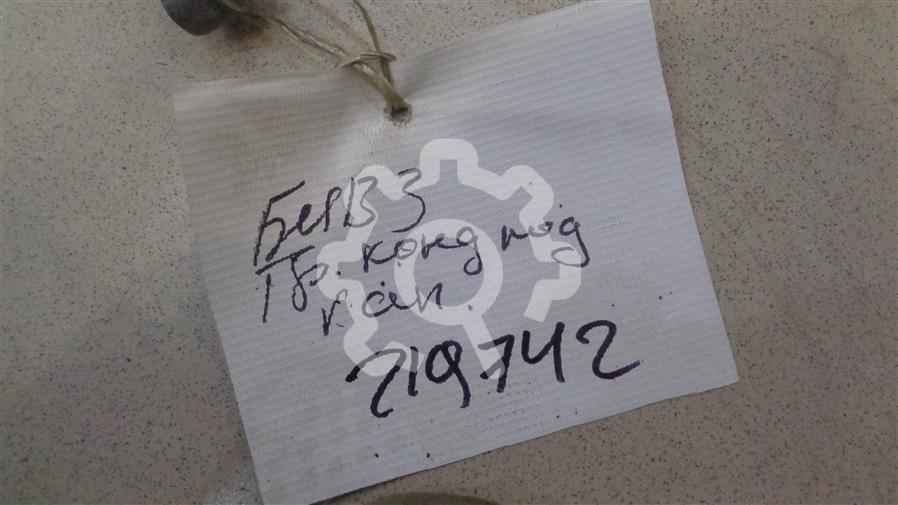 БелВЗ
Тр. конд под
кап.
219742